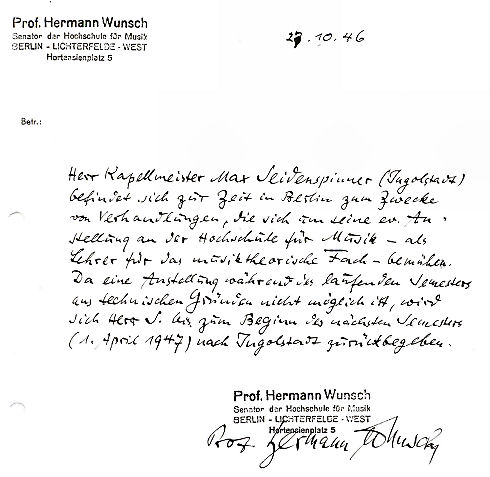 Prof. Hermann Wunsch
Senator der Hochschule für Musik
BERLIN - LICHTERFELDE - WEST
Hortensienplatz 5
27.10.46
Betr.:
Herr Kapellmeister Max Seidenspinner (Ingolstadt)
befindet sich zur Zeit in Berlin zum Zwecke
von Verhandlungen, die sich um seine ev. An-
stellung an der Hochschule für Musik – als
Lehrer für das musiktheorische Fach – bemühen.
Da eine Anstellung während des laufenden Semesters
aus technischen Gründen nicht möglich ist, wird
sich Herr S. bis zum Beginn des nächsten Semesters
(1. April 1947) nach Ingolstadt zurückbegeben.
Prof. Hermann Wunsch
Senator der Hochschule für Musik
BERLIN - LICHTERFELDE - WEST
Hortensienplatz 5
Prof. Hermann Wunsch